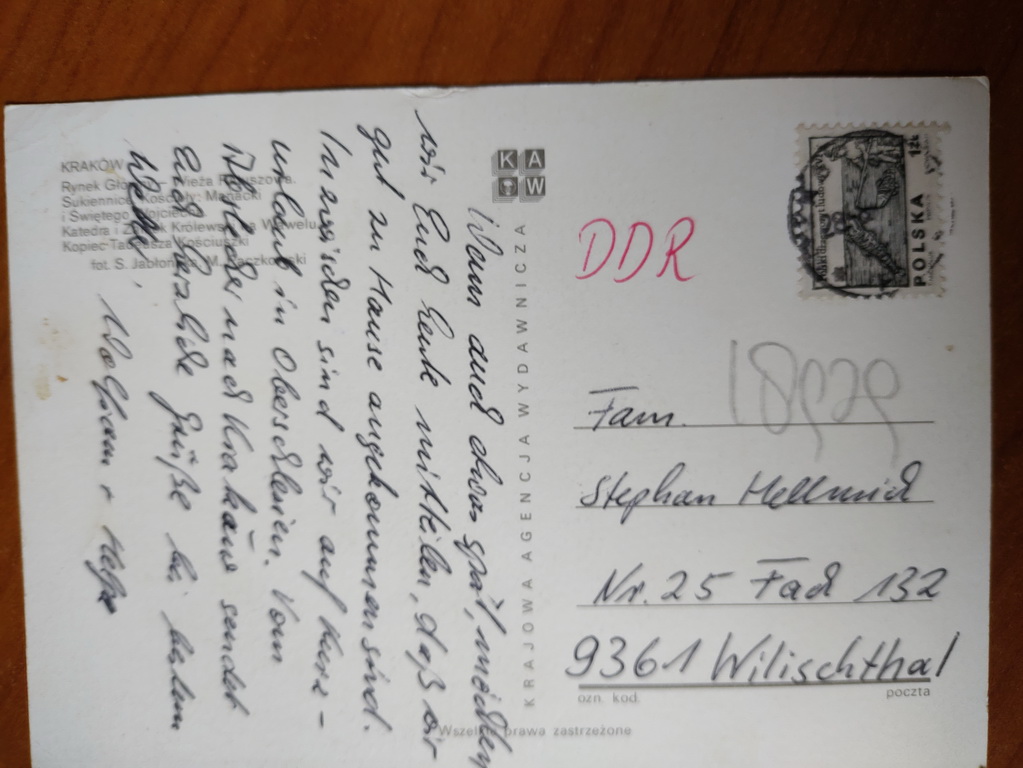 KRAKÓW
Rynek Główny – Wieża Ratuszowa.
Sukiennice. Kościoły: Mariacki
i Świętego Wojciecha
Katedra i Zamek Królewski na Wawelu
Kopiec Tadeusza Kościuszki
fot. S. Jabłońska, M. Raczkowski
Wenn auch etwas spät, möchten
wir Euch heute mitteilen, daß wir
gut zu Hause angekommen sind.
Inzwischen sind wir auf Kurz-
urlaub in Oberschlesien. Vom
nach Krakau sendet
Euch herzliche Grüße bei bestem
Wolfram + Helga
KAW
KRAJOWA AGENCJA WYDAWNICZA
POLSKA
DDR
Fam.
Stephan Hellmich
Nr. 25 Fach 132
9361 Wilischthal
ozn. kod. poczta
Wszelkie prawa zastrzeżone